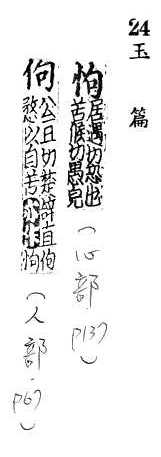 24
玉篇
怐
居遇切
苦候切愚皃
(心部 p137)
佝
公豆切楚辞直佝
愗以自苦亦作怐
(人部 p67)